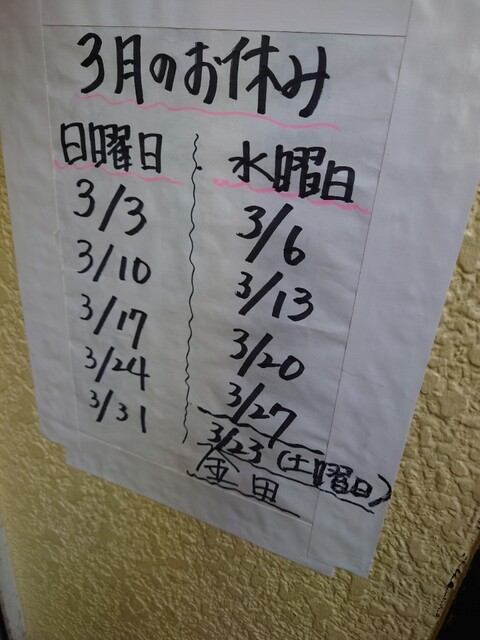 3月のお休み
日曜日
3/3
3/10
3/17
3/24
3/31
水曜日
3/6
3/13
3/20
3/27
3/23(土曜日)
金田